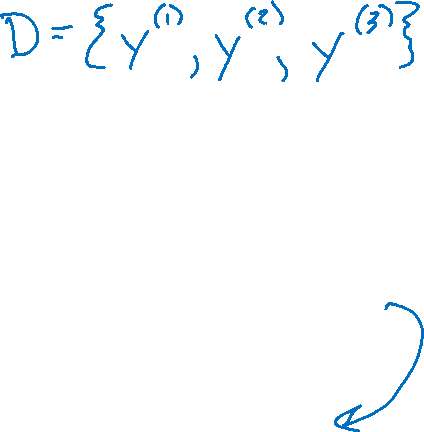 D = {y⁽¹⁾, y⁽²⁾, y⁽³⁾}